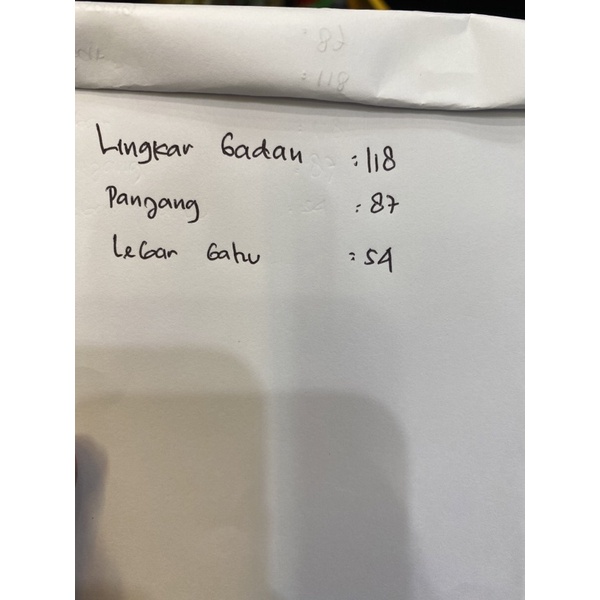 Lingkar badan : 118
Panjang : 87
Lebar bahu : 54